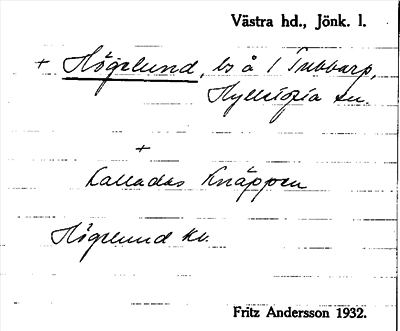 Västra hd., Jönk. l.
+ Höglund, bs å 1 Tubbarp,
Hylletofta sn.
+
Kallades Knäppen
Höglund kv.
Fritz Andersson 1932.